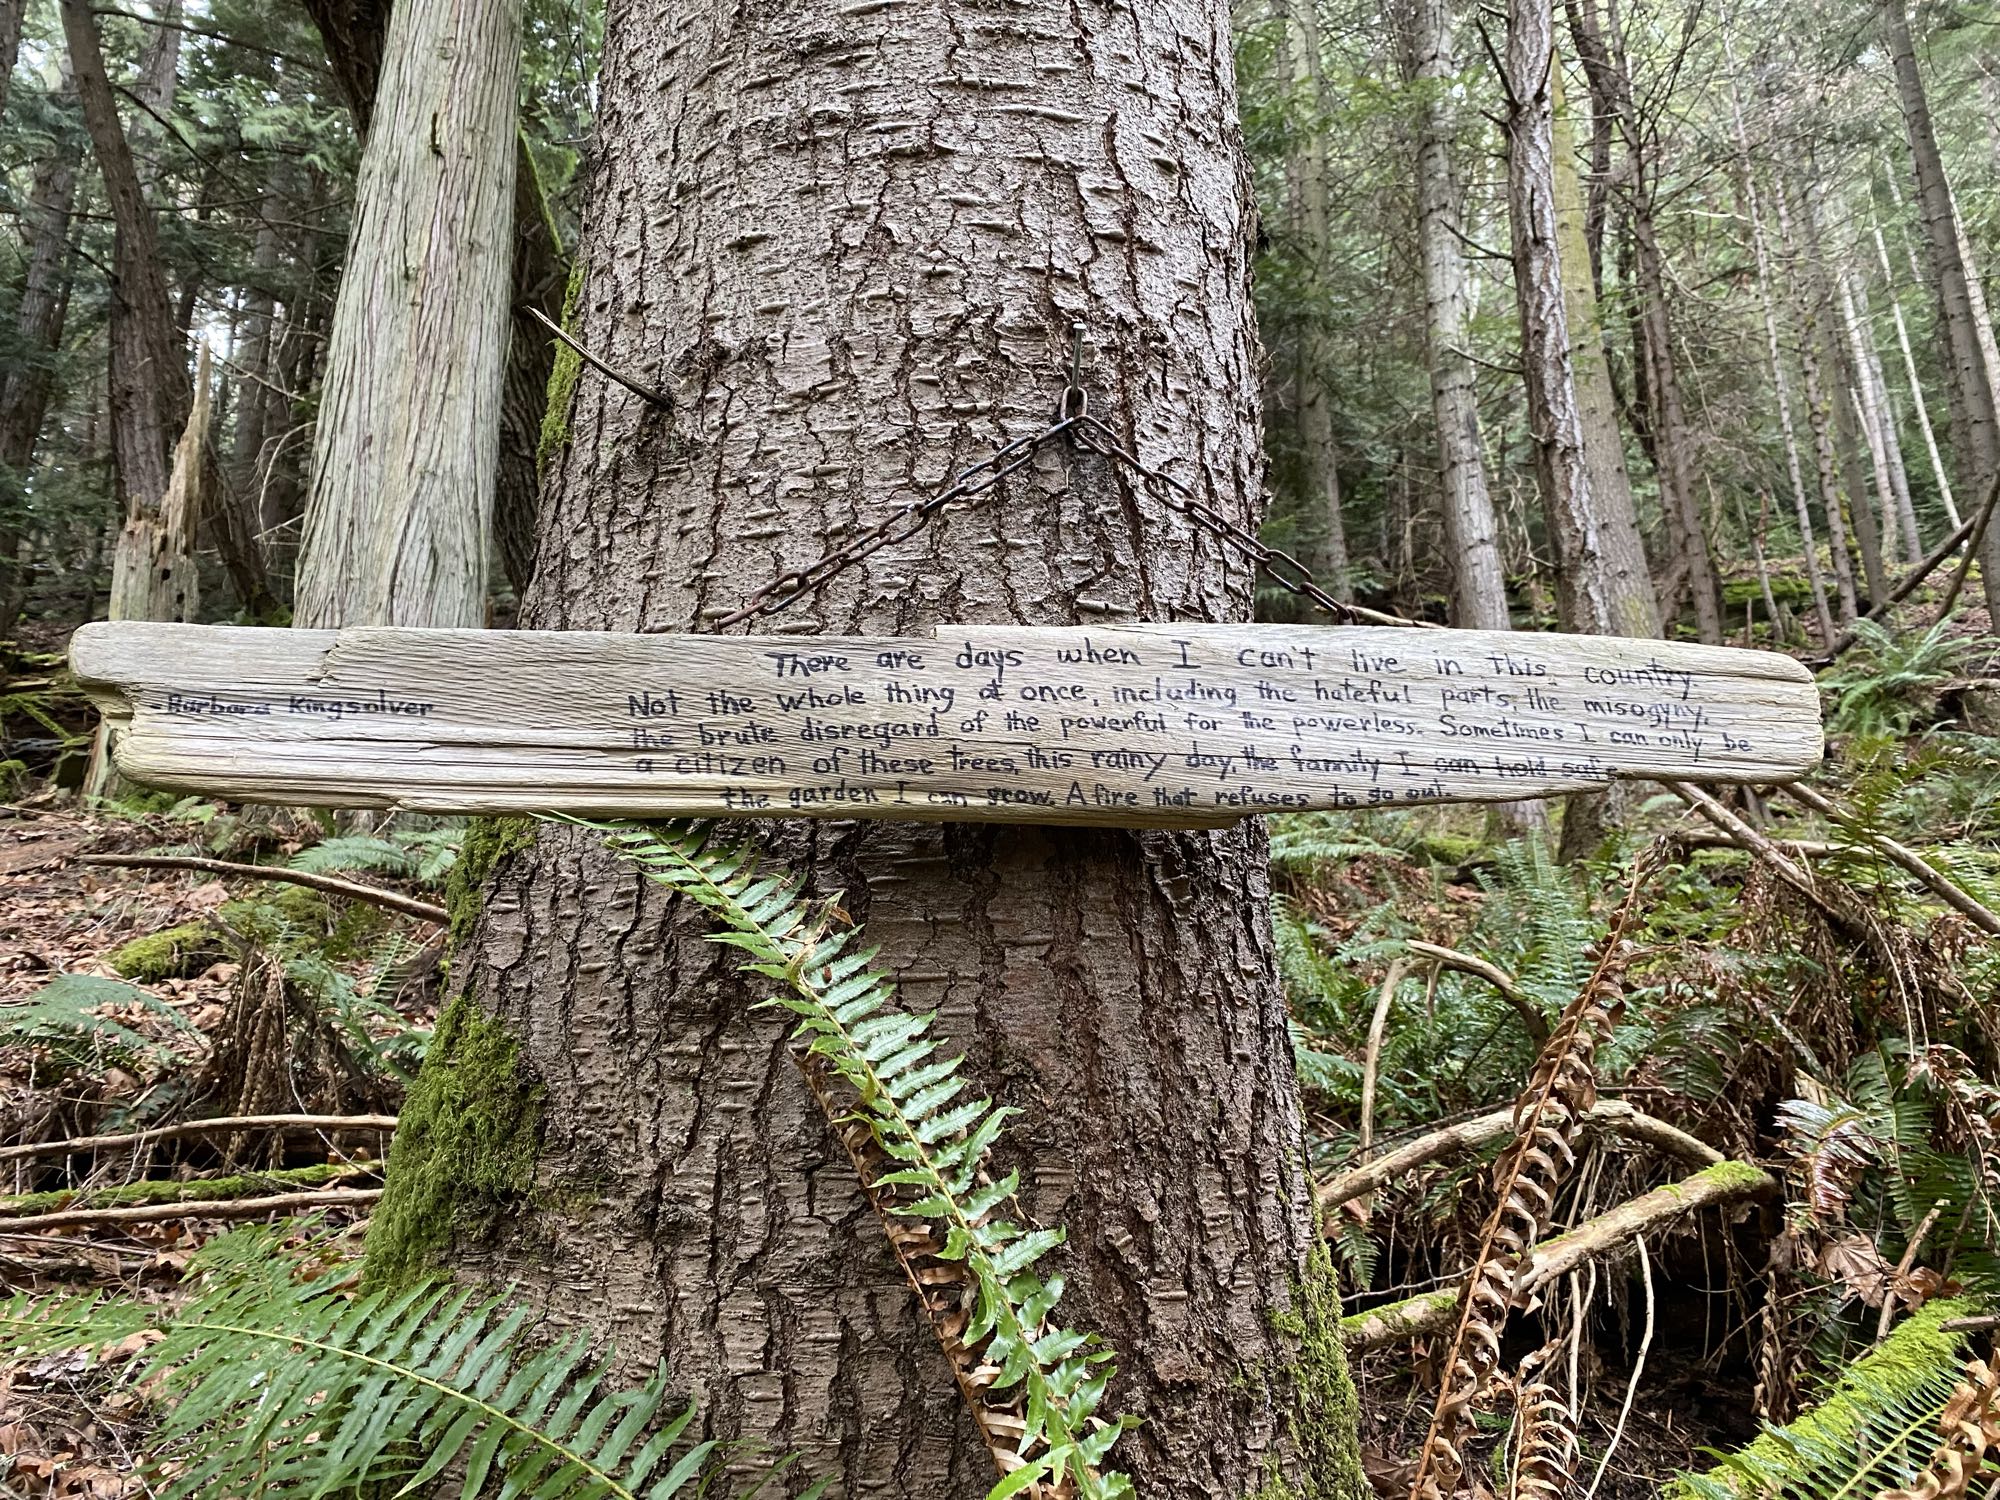 There are days when I can't live in this country.
Not the whole thing at once, including the hateful parts, the misogyny,
the brute disregard of the powerful for the powerless. Sometimes I can only be
a citizen of these trees, this rainy day, the family I can hold safe
the garden I can grow. A fire that refuses to go out.
-Barbara Kingsolver